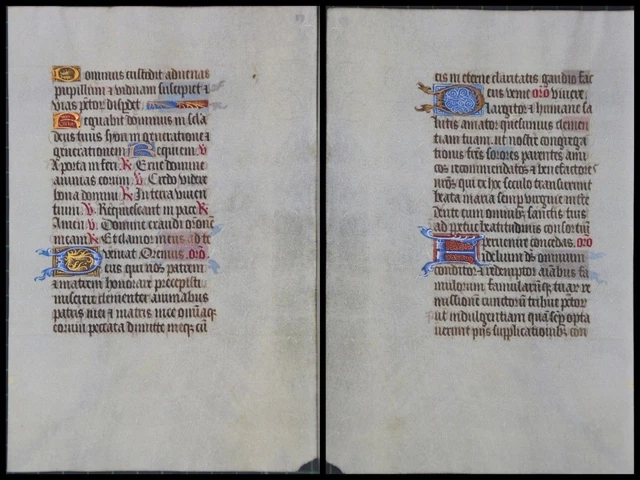 Dominus custodit advenas
pupillum et viduam suscipiet et
vias pctor disperdet
Regnabit dominus in secla
deus tuus syon in generatione et
generationem Requiem V
A porta inferi R Erue domine
animas eorum V Credo videre
bona domini R In terra viven
tium V Requiescant in pace R
Amen V Domine exaudi oronē
meam R Et clamor meus ad te
veniat Oremus oro
Deus qui nos patrem
et matrem honorare precepisti
miserere clementer animabus
patris mei et matris mee omiaq
eorum peccata dimitte meq cū
eis in eterne claritatis gaudio fac
Deus venie oro vivere
largitor et humane sa
lutis amator quesumus clemen
tiam tuam ut nostre congrega
tionis frēs sorores parentes ami
cos recommendatos et benefactores
nrōs qui ex hoc seculo transierunt
beata maria semp virgine inter
dente cum omnibus sanctis tuis
ad perpetue beatitudinis consortiū
pervenire concedas oro
Fidelium ds omnium
conditor et redemptor aīabus fa
mulorum famularumq tuar re
missionē cunctorum tribue pctor
ut indulgentiam quā semp opta
verunt piis supplicationib con